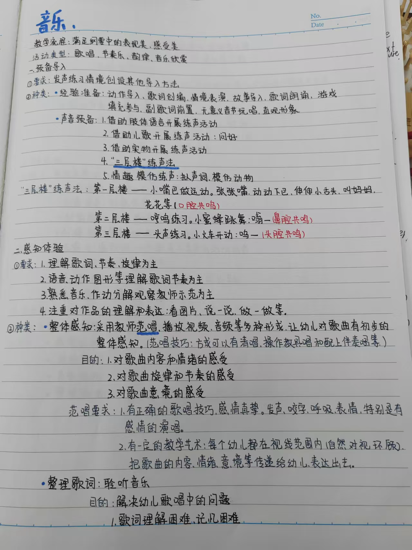 音乐.
No.
Date
教学定应:满足需要中的表现美、感受美
活动类型:歌唱、节奏乐、韵律、音乐欣赏
一.预备导入
①要求:发声练习情境创设其他导入方法
②种类:·经验准备:动作导入、歌词创编、情境表演、故事导入、歌词朗诵、游戏
填充参与、副歌词前置、无意义音节玩唱、直观形象
·声音预备:1.借助肢体语言开展练声活动
2.借助儿歌开展练声活动:问好
3.借助实物开展练声活动
4."三层楼"练声法
5.情趣模仿练声:拟声词、模仿动物
"三层楼"练声法:第一层楼——小嘴巴做运动。张张嘴,动动下巴,伸伸小舌头,叫妈妈,
花花等(口腔共鸣)
第二层楼——哼鸣练习。小蜜蜂跳舞:嗡—(鼻腔共鸣)
第三层楼——头声练习。小火车开动:呜—(头腔共鸣)
二.感知体验
①要求:1.理解歌词、节奏、旋律为主
2.语言、动作图形等理解歌词节奏为主
3.熟悉音乐、作动分解观察教师示范为主
4.注重对作品的理解和表达:看图片,说一说,做一做等。
②种类:·整体感知:采用教师范唱、播放视频、音频等多种形式,让幼儿对歌曲有初步的
整体感知。(范唱技巧:方式可以有清唱、操作教具唱和配上伴奏唱等)
目的:1.对歌曲内容和情绪的感受
2.对歌曲旋律和节奏的感受
3.对歌曲意境的感受
范唱要求:1.有正确的歌唱技巧,感情真挚。发声、咬字、呼吸、表情,特别是有
感情的演唱。
2.有一定的教学艺术:每个幼儿都在视线范围内(自然对视、环顾)
把歌曲的内容、情绪、意境等传递给幼儿,表达出来。
·整理歌词:聆听音乐
目的:解决幼儿歌唱中的问题
1.歌词理解困难、记忆困难